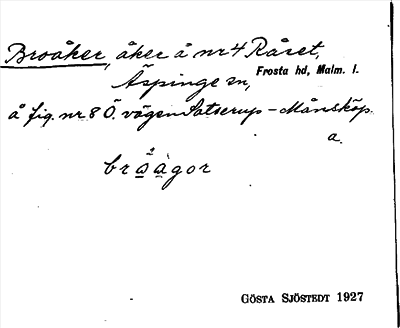 Broåker, åker å nr 4 Råset,
Äspinge sn, Frosta hd, Malm. l.
å fig. nr 8 Ö. vägen Satserup-Månsköp.
a.
GÖSTA SJÖSTEDT 1927